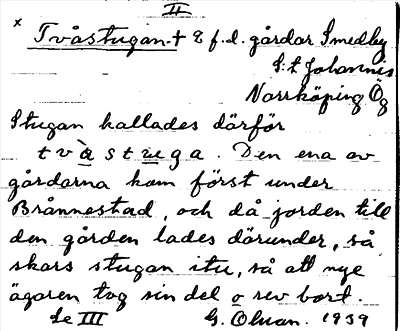 II
x Tvåstugan.† 2 f.d. gårdar Smedby
S:t Johannis
Norrköping Ög
Stugan kallades därför
tvàstuga. Den ena av
gårdarna kom först under
Brånnestad, och då jorden till
den gården lades därunder, så
skars stugan itu, så att nye
ägaren tog sin del o rev bort.
Se III G. Olson. 1939